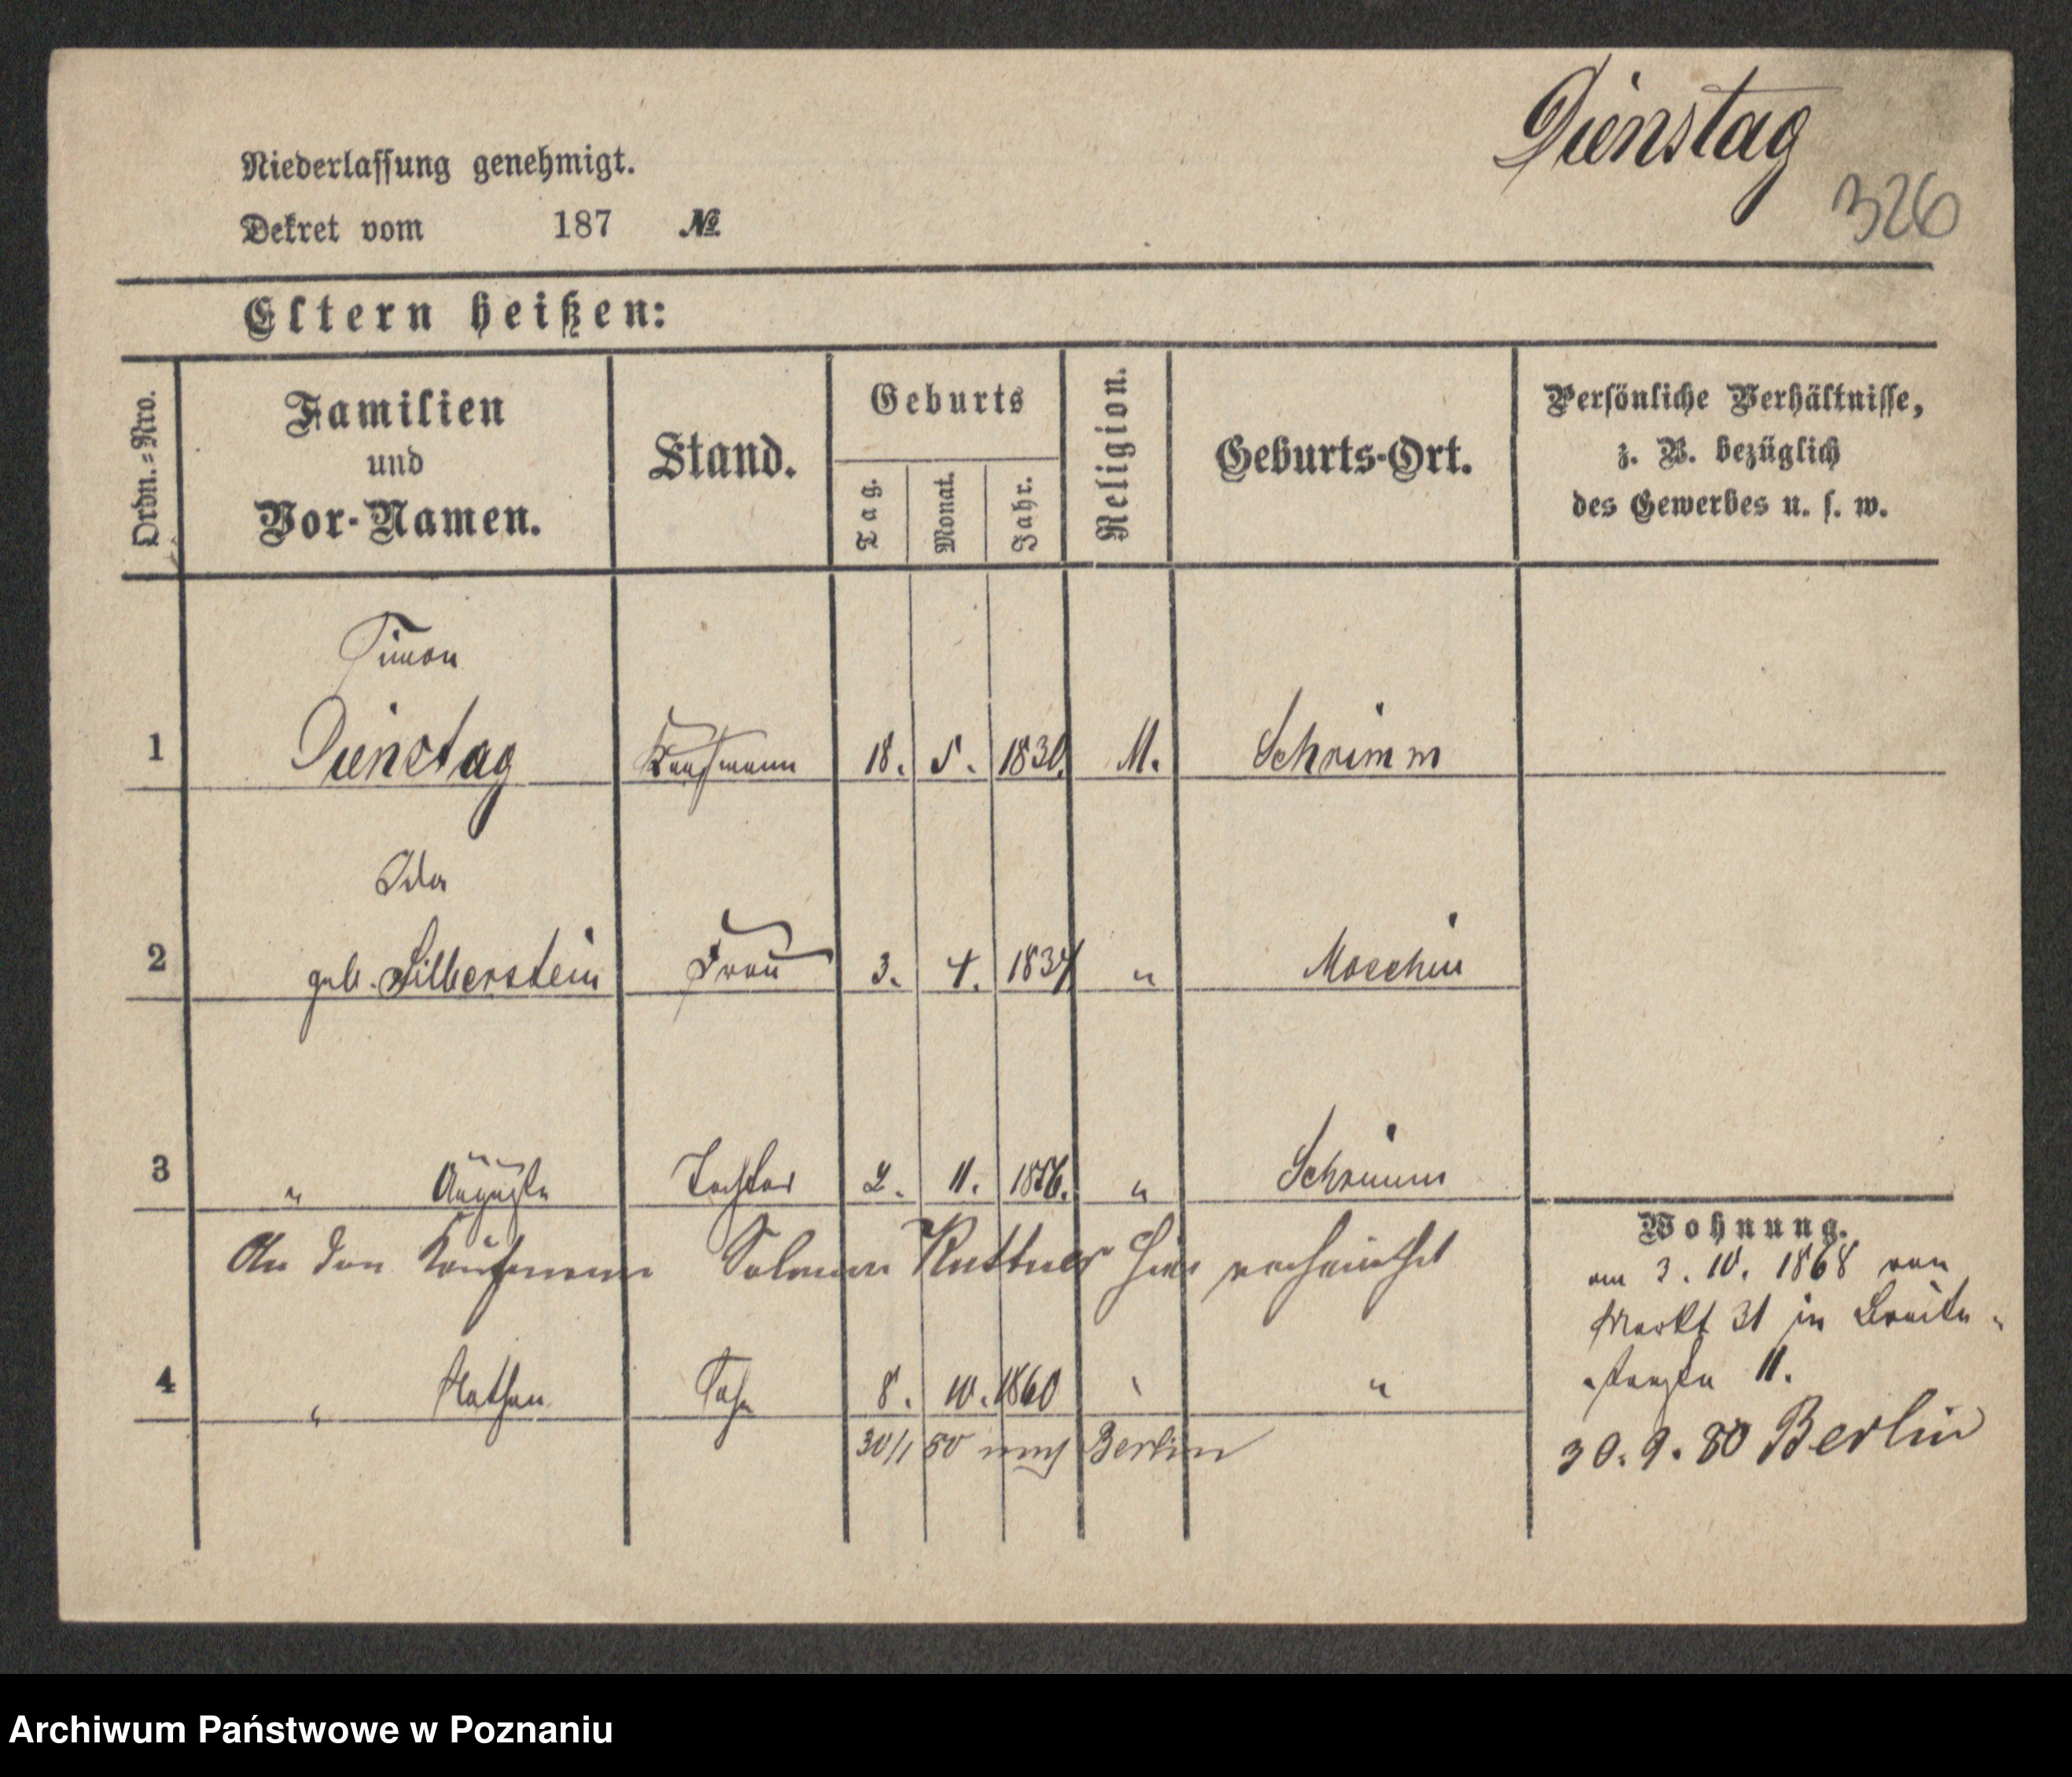 Dienstag
326
Niederlassung genehmigt.
Dekret vom 187 №
Eltern heißen:
Ordn.=Nro.
Familien
und
Vor-Namen.
Stand.
Geburts
Tag.
Monat.
Jahr.
Religion.
Geburts-Ort.
Persönliche Verhältnisse,
z. B. bezüglich
des Gewerbes u. s. w.
Simon
1 Dienstag Kaufmann 18. 5. 1830. M. Schrimm
Ida
2 geb. Silberstein Frau 3. 4. 1834 " Moschin
3 " Auguste Tochter 2. 11. 1856. " Schrimm
An den Kaufmann Salomon Kuttner hier verheirathet
4 " Nathan Sohn 8. 10. 1860 " "
30/1 80 nach Berlin
Wohnung.
am 3. 10. 1868 von
Markt 31 in Breite-
straße 11.
30. 9. 80 Berlin
Archiwum Państwowe w Poznaniu